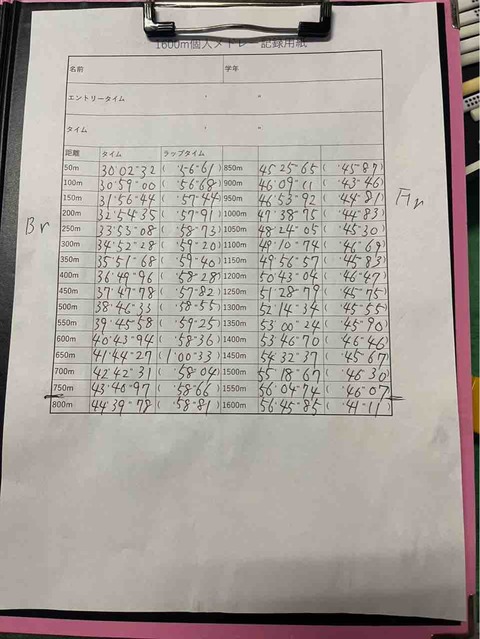 1600m個人メドレー 記録用紙
名前 学年
エントリータイム ' "
タイム ' "
距離 タイム ラップタイム
50m 30'02"32 ( '56"61) 850m 45'25"65 ( '45"87)
100m 30'59"00 ( '56"68) 900m 46'09"11 ( '43"46)
150m 31'56"44 ( '57"44) 950m 46'53"92 ( '44"81)
200m 32'54"35 ( '57"91) 1000m 47'38"75 ( '44"83)
250m 33'53"08 ( '58"73) 1050m 48'24"05 ( '45"30)
300m 34'52"28 ( '59"20) 1100m 49'10"74 ( '46"69)
350m 35'51"68 ( '59"40) 1150m 49'56"57 ( '45"83)
400m 36'49"96 ( '58"28) 1200m 50'43"04 ( '46"47)
450m 37'47"78 ( '57"82) 1250m 51'28"79 ( '45"75)
500m 38'46"33 ( '58"55) 1300m 52'14"34 ( '45"55)
550m 39'45"58 ( '59"25) 1350m 53'00"24 ( '45"90)
600m 40'43"94 ( '58"36) 1400m 53'46"70 ( '46"46)
650m 41'44"27 (1'00"33) 1450m 54'32"37 ( '45"67)
700m 42'42"31 ( '58"04) 1500m 55'18"67 ( '46"30)
750m 43'40"97 ( '58"66) 1550m 56'04"74 ( '46"07)
800m 44'39"78 ( '58"81) 1600m 56'45"85 ( '41"11)
Br
Fr